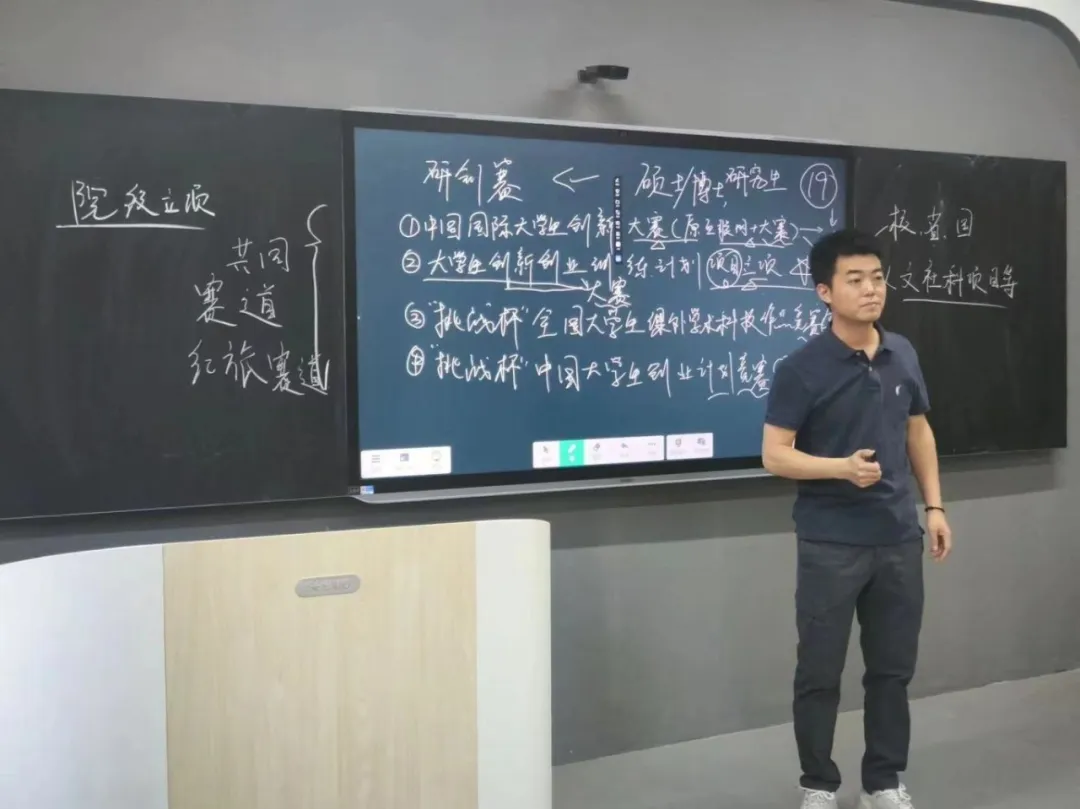 院级立项
共同
赛道
红旅赛道
研创赛 ← 硕士/博士研究生 19
①中国国际大学生创新大赛(原互联网+大赛)→
②大学生创新创业训练计划 项目立项
大赛
③"挑战杯"全国大学生课外学术科技作…竞赛
④"挑战杯"中国大学生创业计划竞赛
校.省.国
人文社科项目等